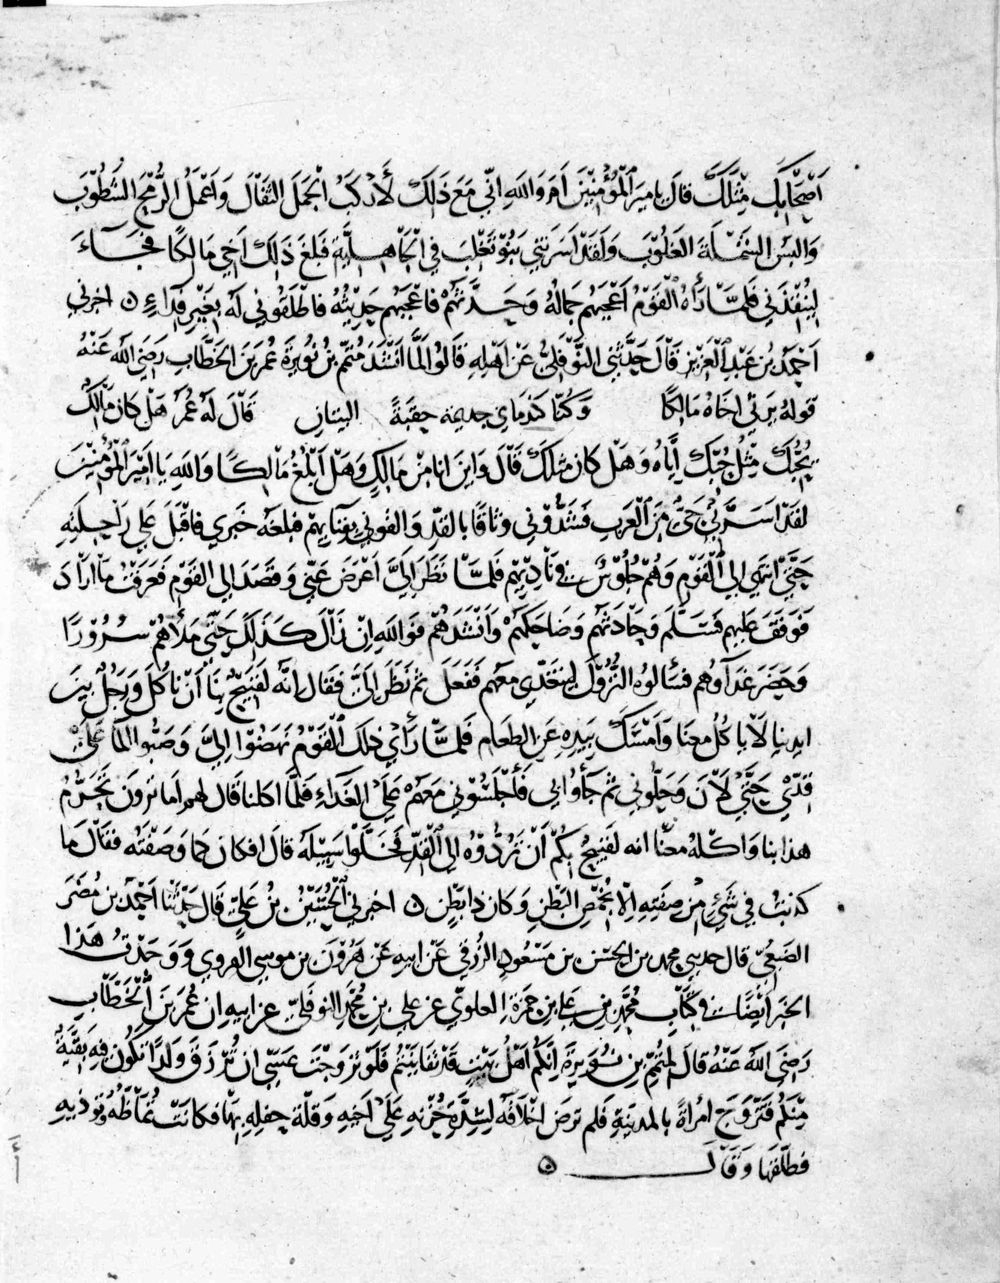 أَصْحَابِكَ مِثْلَكَ قالَ يا ميرَ الْمُؤْمِنِينَ أمَ وَاللهِ انِّي مَعَ ذَالِكَ لَأَرْكَبُ الْجَمَلَ الثَّفَالَ وَأَعْمَلُ الرُّمْحَ الشَّطُوْبَ
وَالبسُ الشَّمْلَةَ الفَلُوْبَ وَلَقَدْ أَسَرَتْنِي بَنُوْ تَغْلِبَ فِي الْجَاهِلِيَّةِ فَبَلَغَ ذَلِكَ أَخِي مَالِكًا فَجَآءَ
لِيُنْقِذَنِي فَلَمَّا رَأَهُ الْقَوْمُ أَعْجَبَهُمْ جَمَالُهُ وَحَدَّثَهُمْ فَأَعْجَبَهُمْ حَدِيْثُهُ فَاطْلَقُوْنِي لَهُ بِغَيْرِ فِدَاءٍ ۵ اخبرني
أَحْمَدُ بنُ عَبْدِ الْعَزِيْزِ قَالَ حَدَّثَنِي النَّوْفَلِيُّ عَنْ أَهْلِهِ قَالُوا لَمَّا أَنْشَدَ مُتَمِّمُ بنُ نُوَيْرَةَ عُمَرَ بنَ الخَطَّابِ رَضِيَ الله عَنْهُ
قولهُ يرثي اخَاهُ مَالِكًا وَكُنّا كَنَدْمَانِي جذيمة حِقبَةً البيتانِ قَالَ لَهُ عُمَرُ هَلْ كانَ مَالِكٌ
يُحِبُّكَ مِثْلَ حُبِّكَ ايَّاهُ وَهَلْ كانَ مثلَكَ قَالَ وَايْنَ انا مِنْ مَالِكٍ وَهَلْ أبْلُغُ مَالِكًا وَاللهِ يَا أَمِيرَ الْمُؤْمِنِينَ
لقَدْ اسَرَنِي حَيٌّ مِنَ الْعَرَبِ فَشَدُّوْنِي وثاقًا بالقِدِّ وَالقوني بِفنَايِهِمْ فبلغه خَبري فاقبَلَ عَلى رَاحِلَتِهِ
حَتَّى انتهى الى الْقَوْمِ وَهُمْ جُلُوْسٌ فِي نَادِيْهِمْ فَلَمَّا نَظَرَ الَيَّ أَعْرَضَ عَنِّي وَقَصَدَ الى القَوْمِ فَعَرَفْتُ مَا أَرَادَ
فَوَقَفَ عَليهم فَسَلَّمَ وَحَادَثَهُمْ وَضَاحَكَهُمْ وَأَنْشَدَهُمْ فَوَاللهِ انْ زَالَ كَذَلِكَ حَتَّى مَلَأَهُمْ سُرُوْرًا
وَحَضَرَ غَدَآؤهُم فسألوهُ النُّزُوْلَ لِيَتَغَدَّى مَعَهُم فَفَعَلَ ثمَّ نَظَرَ الَيَّ فَقَال انّه لَقَبِيْحٌ بِنَا أَنْ نَاكُلَ وَرَجُلٌ بينَ
ايدِينَا لَا يَاكُلُ معنَا وَأَمْسَكَ بيَدِهِ عَنِ الطَعامِ فَلَمَّا رَأَى ذلكَ الْقَوْمُ نَهَضُوْا الِيَّ وَصَبُّوا الْمَا عَلَى
قِدِّي حَتَّى لَانَ وَحَلُّوْنِي ثم جَأُوا بي فَأَجْلَسُوْنِي مَعَهُمْ عَلَى الغَدَاءِ فَلَمَّا اكلنا قَالَ لهم اما تَرَونَ تَحَرُّمَ
هذا بنا وَاكْلَهُ معنَا انه لَقَبِيْحٌ بِكُمْ أَنْ تَرُدُّوْهُ الى الْقِدِّ فَخَلَّوْا سَبِيْلَهُ قالَ افكان كما وَصَفْتَهُ فقَالَ مَا
كذبتُ في شَيْءٍ مِنْ صِفَتِهِ الّا بخُمصِ البَطْنِ وَكان ذا بطْنٍ ۵ اخبرني الْحُسَيْنُ بنُ عَلِيٍّ قَالَ حَدَّثَنَا أَحْمَدُ بن نصر
الضبعيُّ قال حدثني محمد بن الحسَنِ بن مَسْعُودٍ الزُّرَقي عَنْ ابيهِ عَنْ هَرُوْنَ بن مُوسى الفروي وَوَجَدْتُ هَذا
الخبر ايْضًا فِي كتَابِ مُحَمَّدِ بنِ عَلي بنِ حَمْزَةَ العلويّ عن علي بنِ مُحَمَّدٍ النوفلىّ عن ابيهِ ان عُمَرَ بنَ الْخَطَّابِ
رَضِيَ اللهُ عَنْهُ قَالَ لِمُتَمِّمِ بنِ نُوَيرَةَ انّكُمْ اهْلُ بَيْتٍ قَدْ تفَانَيْتُم فَلَوْ تَزَوَّجْتَ عَسَى ان تُرْزَقَ وَلَدًا تَكُونُ فيهِ بَقيَّةٌ
مِنْكُمْ فَتَزَوَّجَ امْرَأَةً بالمدينةِ فلم ترضَ اخْلَاقَهُ لِشِدَّةِ حُزْنِهِ عَلى اخيهِ وقلّةِ حفلِهِ بِهَا فكانَتْ تُمَاظُّهُ وَتؤذيهِ
فطلَّقَهَا وَقَالَ ۵